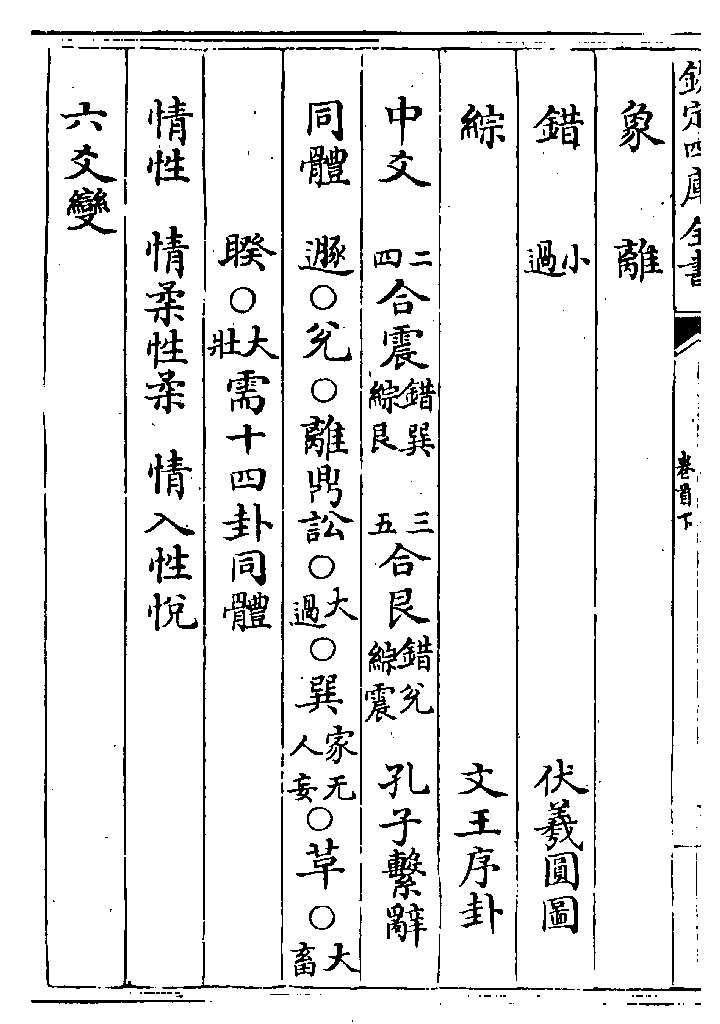 欽定四庫全書
卷首下
象 離
錯 小過 伏羲圓圖
綜 文王序卦
中爻 二四合震錯巽綜艮 三五合艮錯兊綜震 孔子繫辭
同體 遯○兊○離鼎訟○大過○巽家人无妄○草○大畜
睽○大壯需十四卦同體
情性 情柔性柔 情入性悅
六爻變